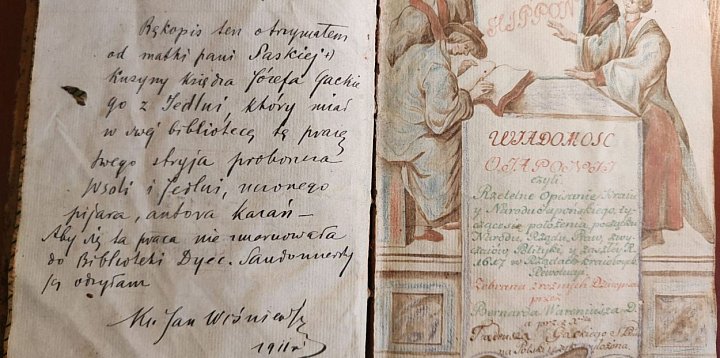 Rękopis ten otrzymałem
od matki pani Saskiej +)
Kuzyny księdza Józefa Gackie
go z Jedlni, który miał
w swej bibliotece tę pracę
swego stryja proboszcza
Wsoli i Jedlni, uczonego
pijara, autora kazań —
Aby się ta praca nie zmarnowała
do Biblioteki Dyec. Sandomierskiej
ją odsyłam
Ks. Jan Wiśniewski
1911 r
HIPPON
WIADOMOSC
O JAPONII
czyli
Rzetelne Opisanie Kraiu
y Narodu Japońskiego, ty-
czące się położenia początku
Narodu, Rządu, Praw, zwy-
czaiów Polityki y
1617 w
Zebrana z rożnych Dzieiopisów
przez
Bernarda Wareniusza D.
a przez X.
Tadeusza Gackiego S.P.
na Polski